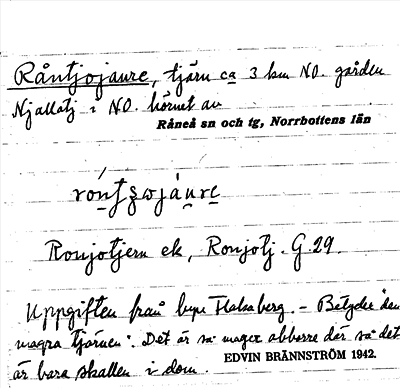 Råntjojaure, tjärn ca 3 km NO. gården
Njallatj i NO. hörnet av
Råneå sn och tg, Norrbottens län
Ronjotjern ek, Ronjotj. G.29.
Uppgiften från byn Flakaberg. - Betyder "den
magra tjärnen". Det är så mager abborre där så det
är bara skallen i dom.
EDVIN BRÄNNSTRÖM 1942.